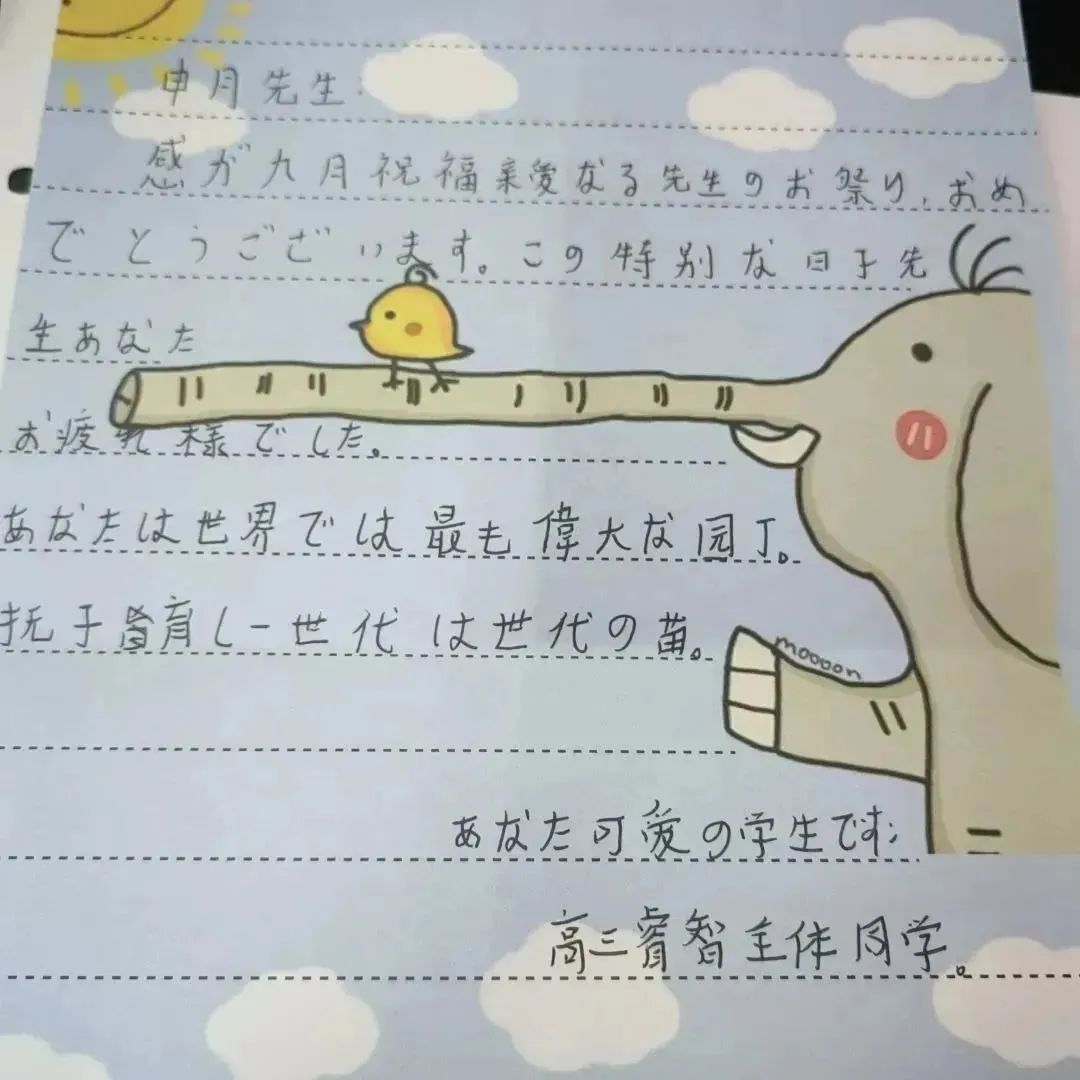 申月先生:
感が九月祝福亲愛なる先生のお祭り,おめ
でとうございます。この特别な日子先
生あなた
お疲れ様でした。
あなたは世界では最も偉大な园丁。
抚子育し一世代は世代の苗。
moooon
あなた可爱の学生です:
高三睿智主体同学。